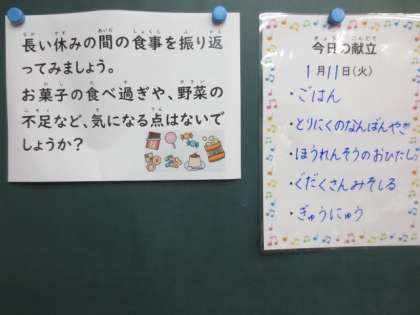 長い休みの間の食事を振り返
ってみましょう。
お菓子の食べ過ぎや、野菜の
不足など、気になる点はないで
しょうか?
今日の献立
1月11日(火)
・ごはん
・とりにくのなんばんやき
・ほうれんそうのおひたし
・ぐだくさんみそしる
・ぎゅうにゅう